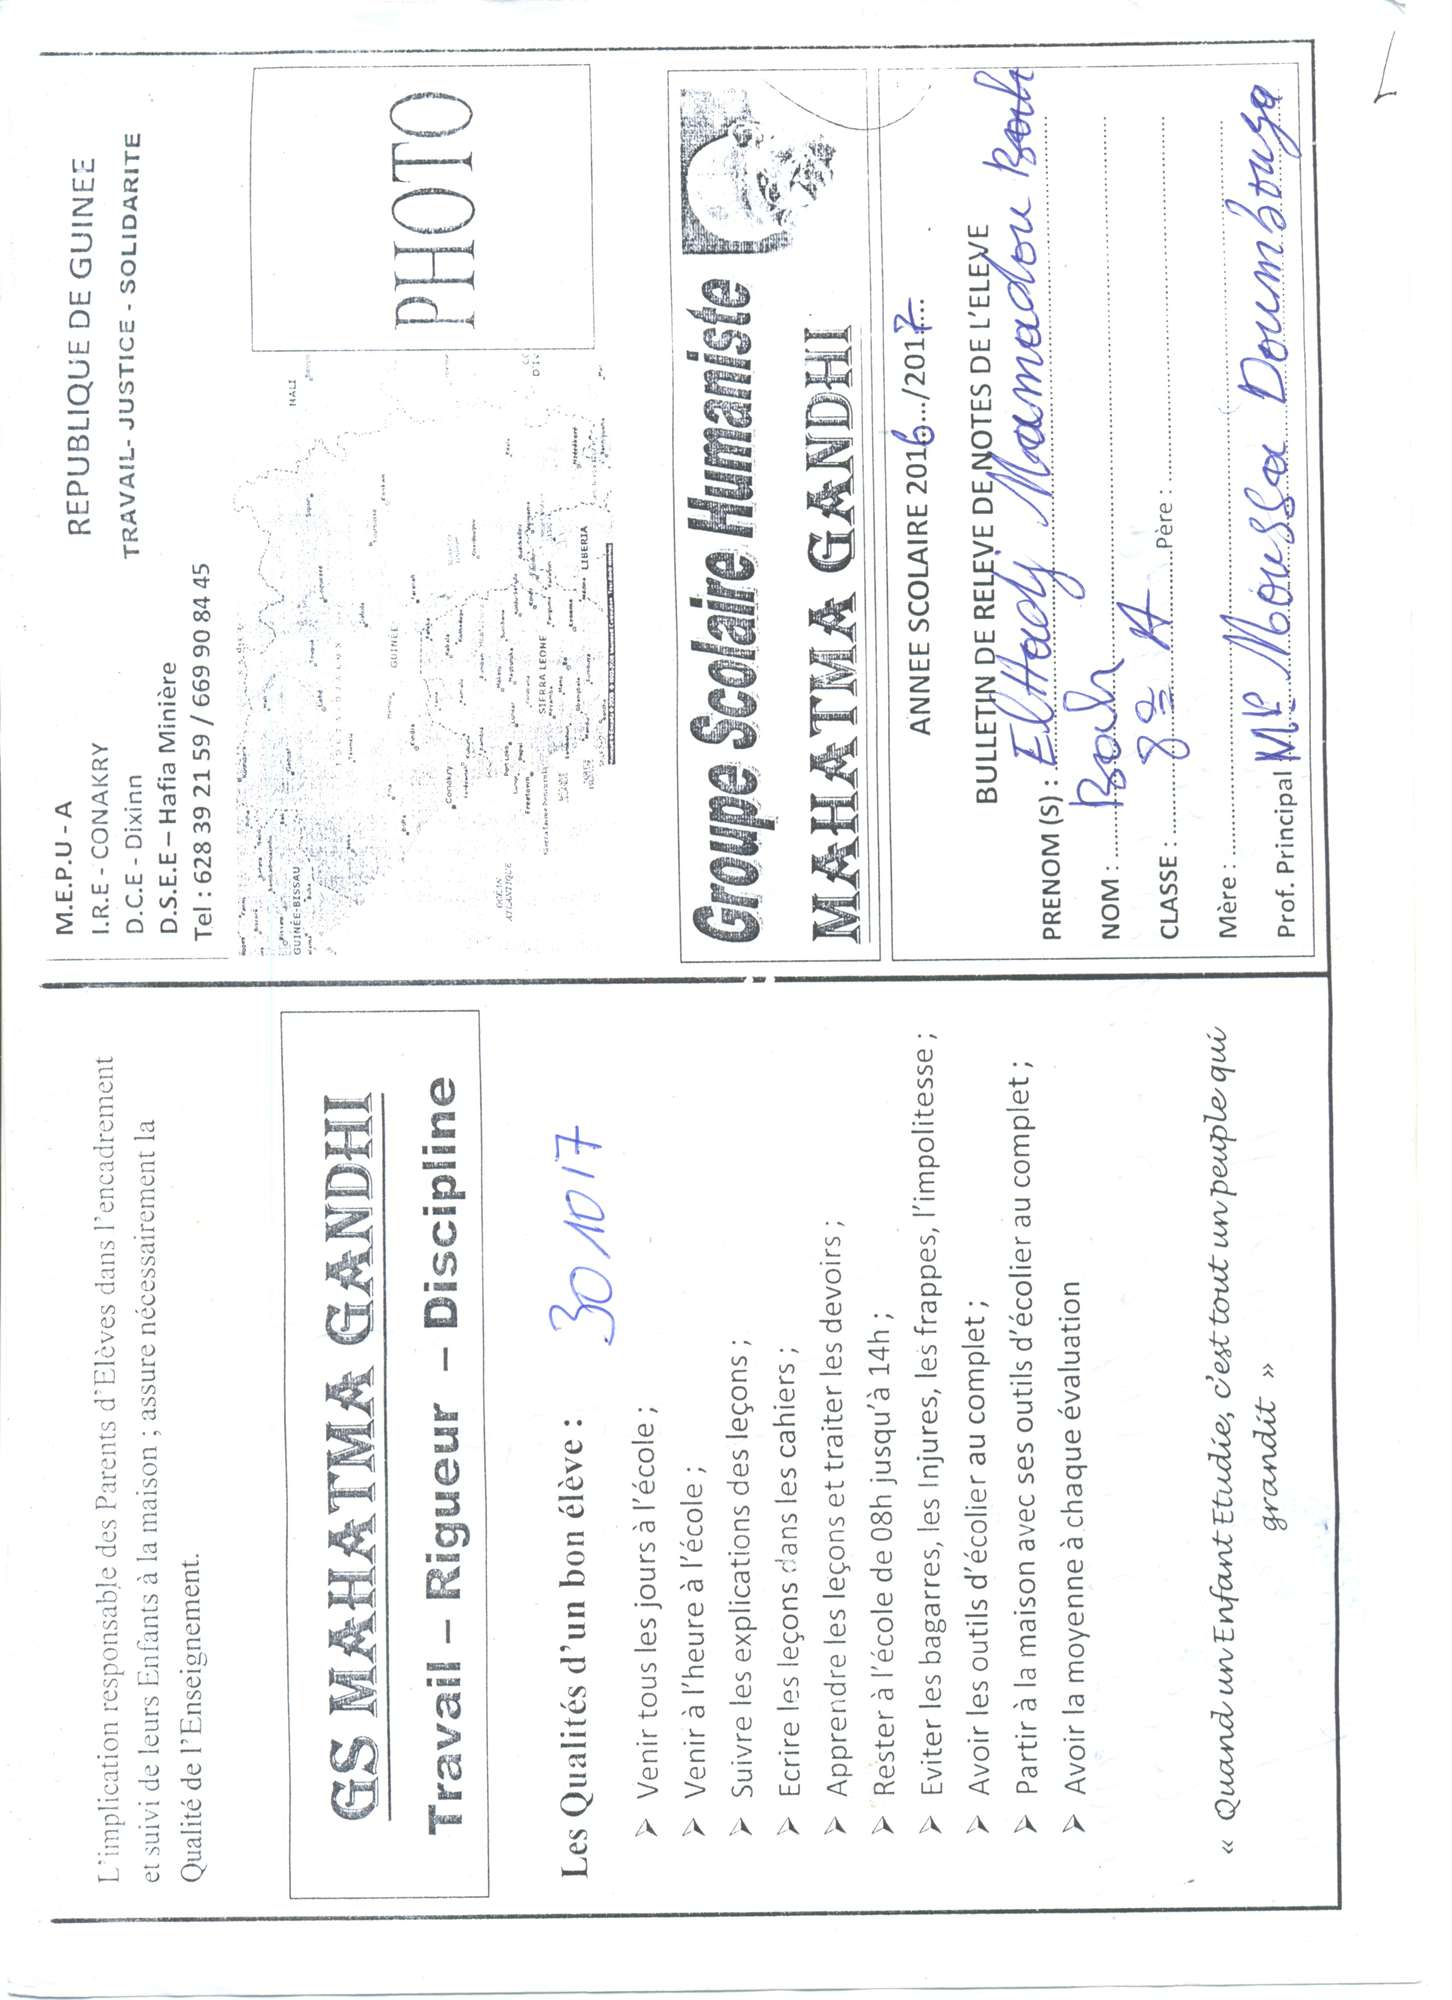 L'implication responsable des Parents d'Elèves dans l'encadrement
et suivi de leurs Enfants à la maison ; assure nécessairement la
Qualité de l'Enseignement.
GS MAHATMA GANDHI
Travail – Rigueur – Discipline
Les Qualités d'un bon élève :
301017
➢ Venir tous les jours à l'école ;
➢ Venir à l'heure à l'école ;
➢ Suivre les explications des leçons ;
➢ Ecrire les leçons dans les cahiers ;
➢ Apprendre les leçons et traiter les devoirs ;
➢ Rester à l'école de 08h jusqu'à 14h ;
➢ Eviter les bagarres, les Injures, les frappes, l'impolitesse ;
➢ Avoir les outils d'écolier au complet ;
➢ Partir à la maison avec ses outils d'écolier au complet ;
➢ Avoir la moyenne à chaque évaluation
« Quand un Enfant Etudie, c'est tout un peuple qui
grandit »
M.E.P.U - A
REPUBLIQUE DE GUINEE
I.R.E - CONAKRY
TRAVAIL- JUSTICE - SOLIDARITE
D.C.E - Dixinn
D.S.E.E – Hafia Minière
Tel : 628 39 21 59 / 669 90 84 45
MALI
GUINÉE-BISSAU
GUINÉE
Conakry
SIERRA LEONE
Freetown
LIBERIA
OCÉAN
ATLANTIQUE
PHOTO
Groupe Scolaire Humaniste
MAHATMA GANDHI
ANNEE SCOLAIRE 2016.../2017...
BULLETIN DE RELEVE DE NOTES DE L'ELEVE
PRENOM (S) : ElHadj Mamadou Bah
NOM : Bah
CLASSE : 8e A Père :
Mère :
Prof. Principal Mr Moussa Doumbouya